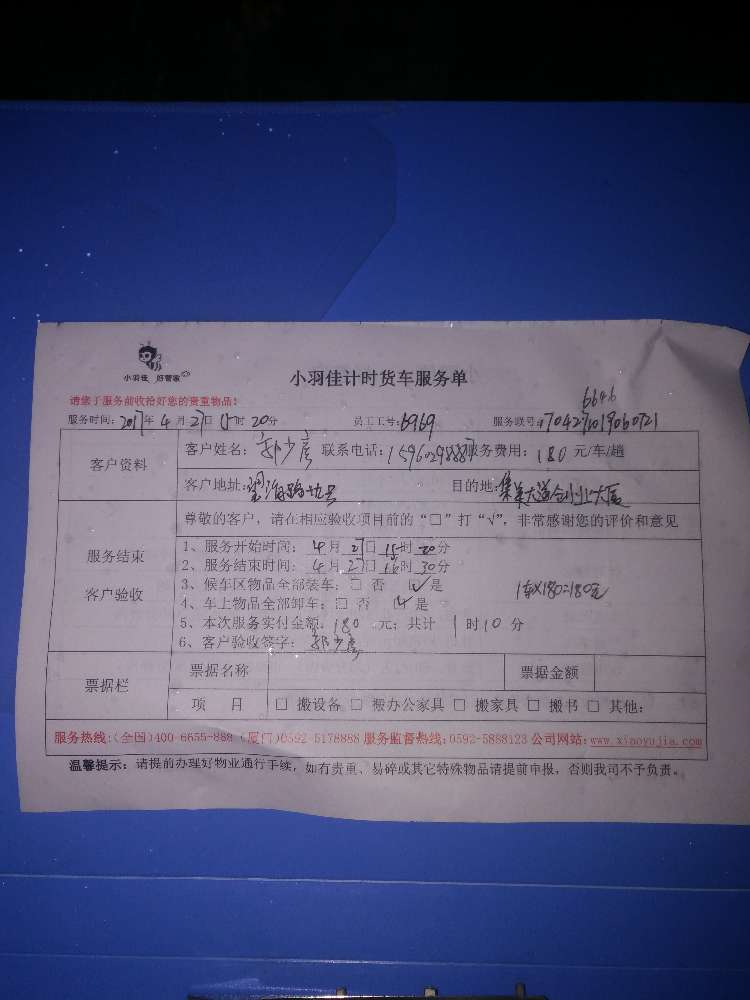 小羽佳 好管家
小羽佳计时货车服务单
请您于服务前收拾好您的贵重物品!
6646
服务时间: 2017年 4 月 27日 15时 20分 员工工号: 6969 服务联号:
客户资料
客户姓名: 郭少彦 联系电话: 服务费用: 180 元/车/趟
客户地址: 目的地: 集美大道
尊敬的客户,请在相应验收项目前的“□”打“√”,非常感谢您的评价和意见
服务结束
客户验收
1、服务开始时间: 4月 27日 15时 20分
2、服务结束时间: 4月 27日 16时 30分
3、候车区物品全部装车: □ 否 ☑ 是 1车X180=180元
4、车上物品全部卸车: □ 否 ☑ 是
5、本次服务实付金额: 180 元; 共计 1 时10 分
6、客户验收签字: 郭少彦
票据栏
票据名称 票据金额
项 目 □ 搬设备 □ 搬办公家具 □ 搬家具 □ 搬书 □ 其他:
服务热线:(全国)400-6655-888 (厦门)0592-5178888 服务监督热线:0592-5888123 公司网站: www.xiaoyujia.com
温馨提示: 请提前办理好物业通行手续,如有贵重、易碎或其它特殊物品请提前申报,否则我司不予负责。